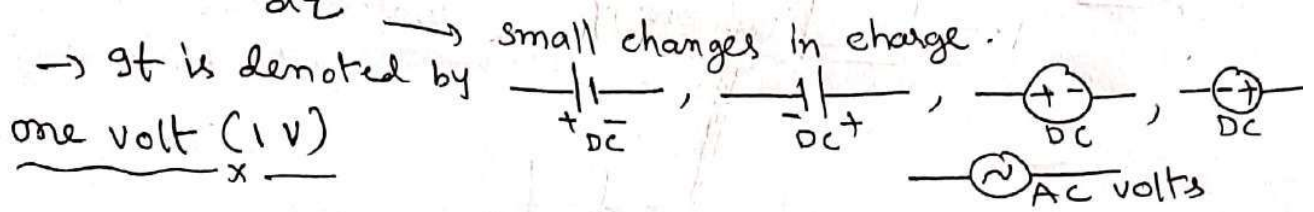 → small changes in charge.
→ It is denoted by + DC - , - DC + , + - DC , - + DC
one volt (1 V)
x
~ AC volts